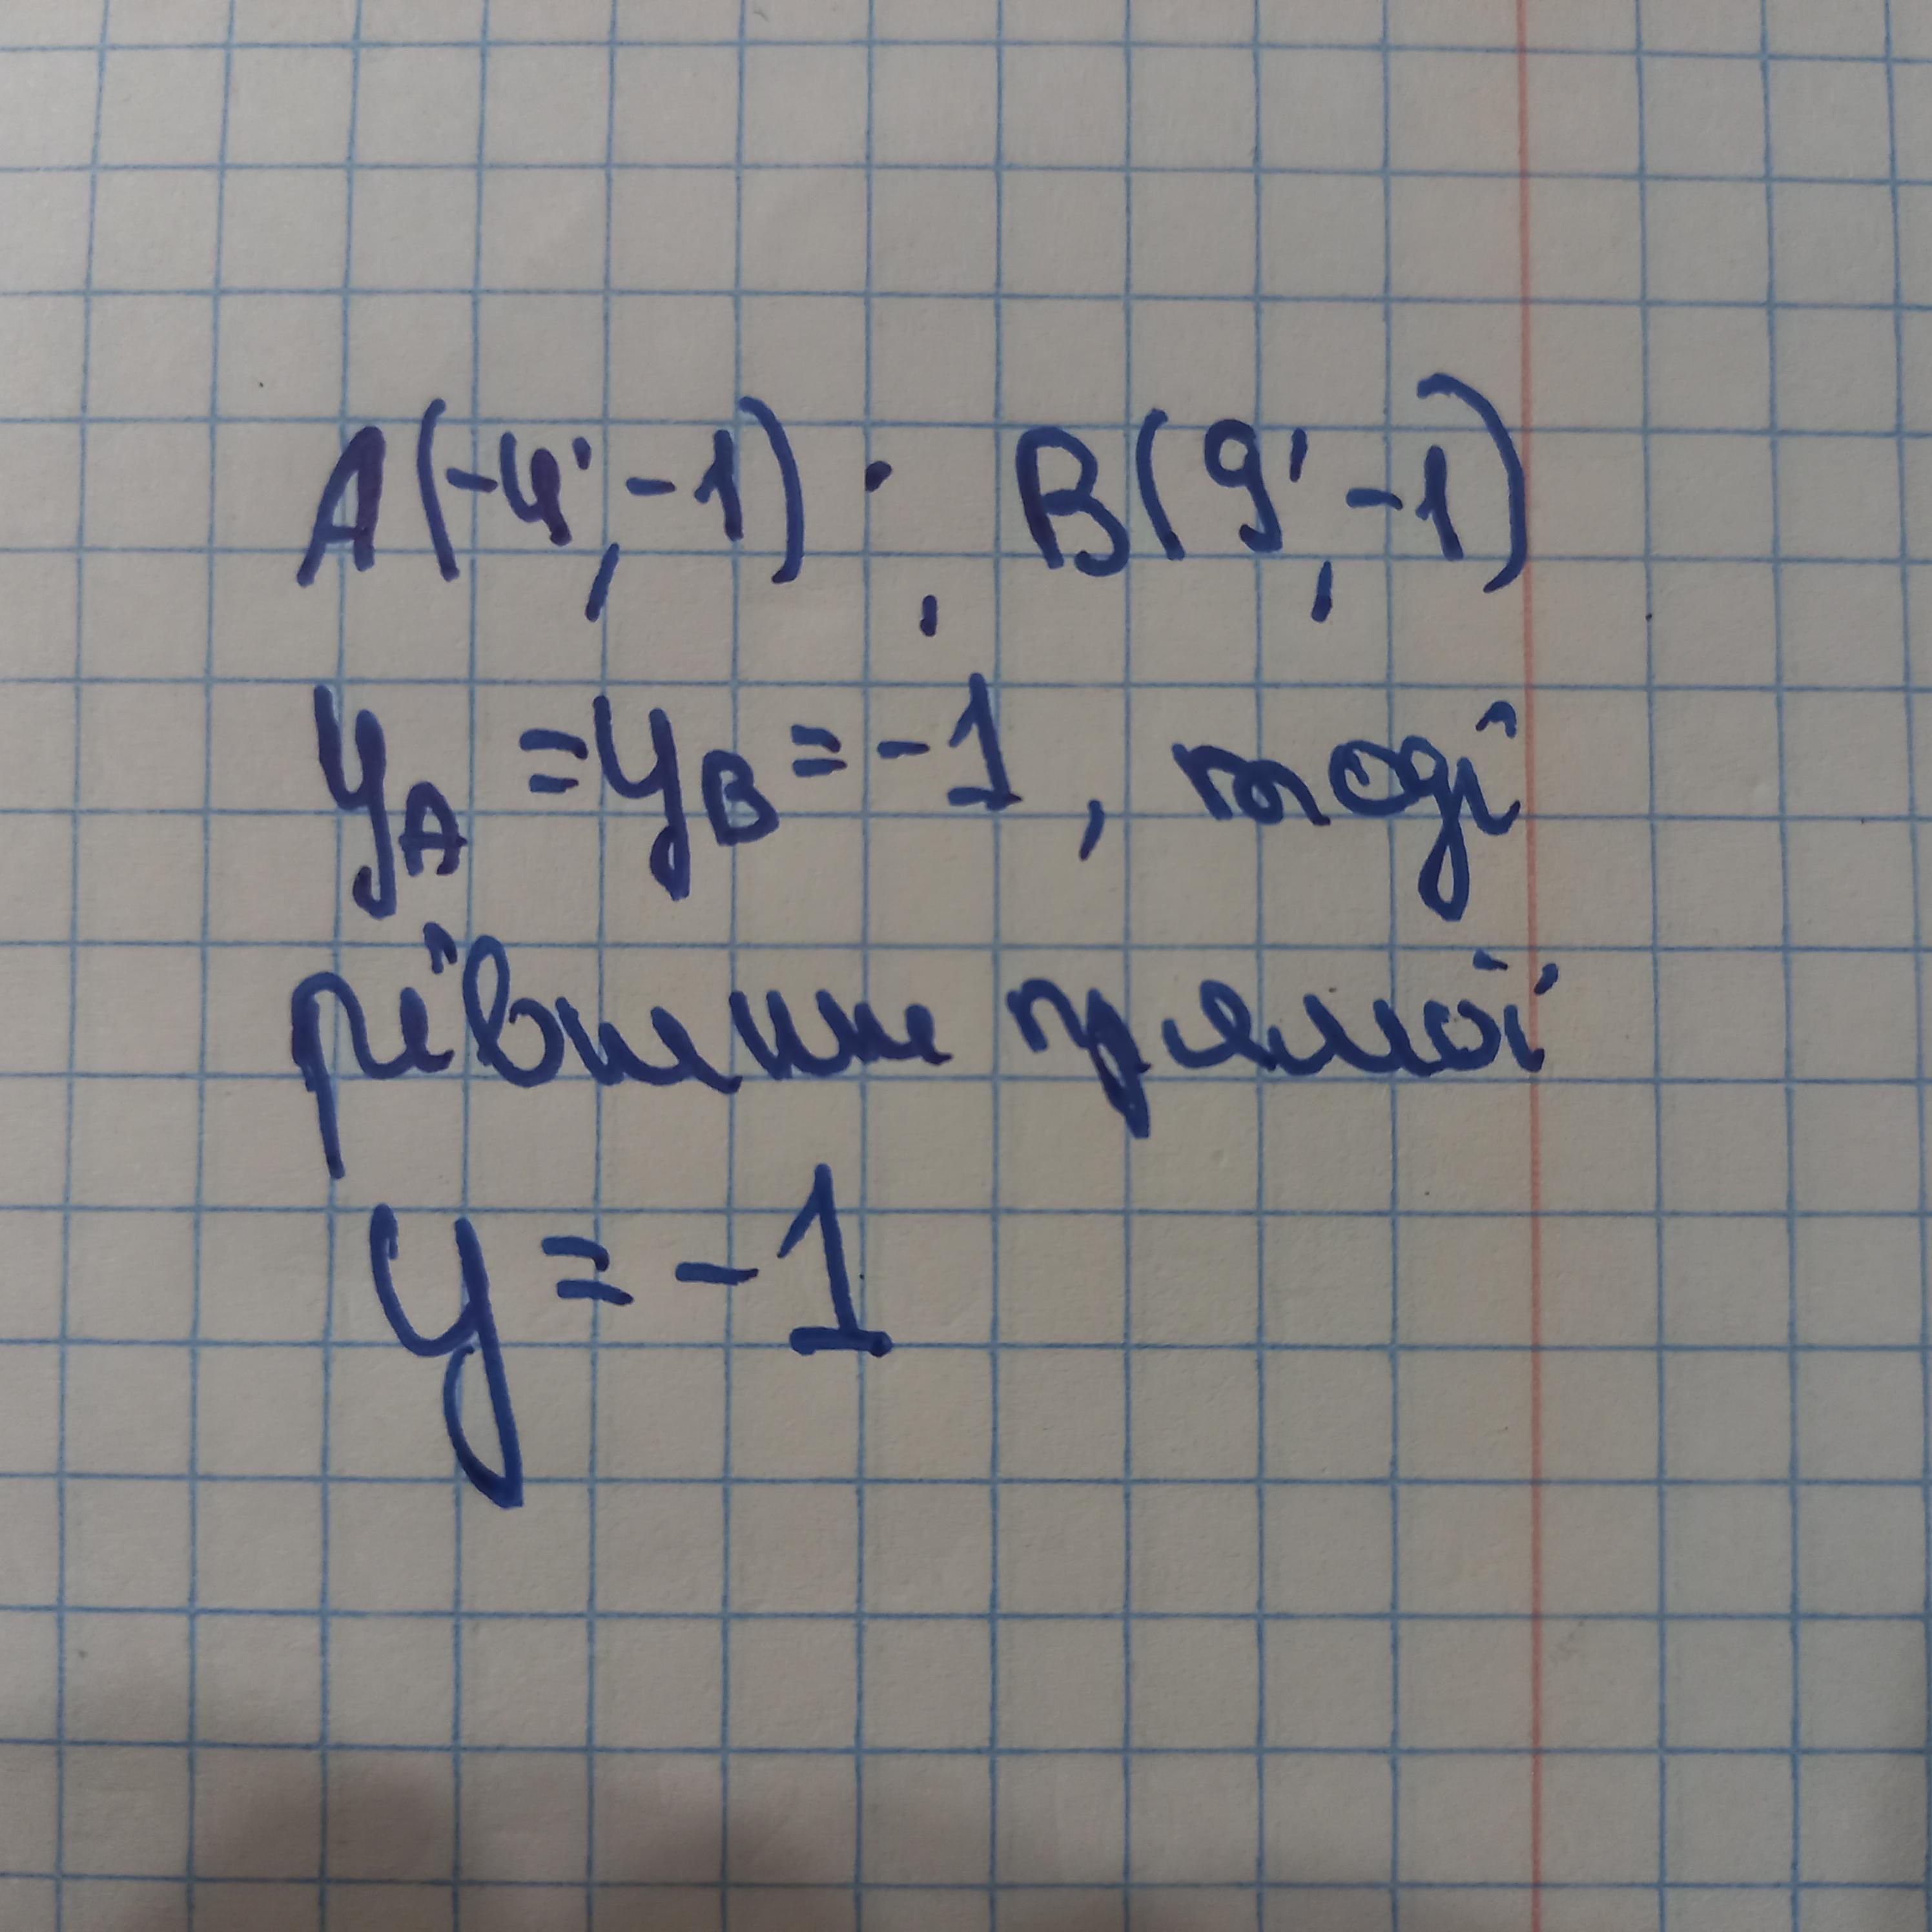 A(-4; -1); B(9; -1)
y_A = y_B = -1, тоді
рівняння прямої
y = -1